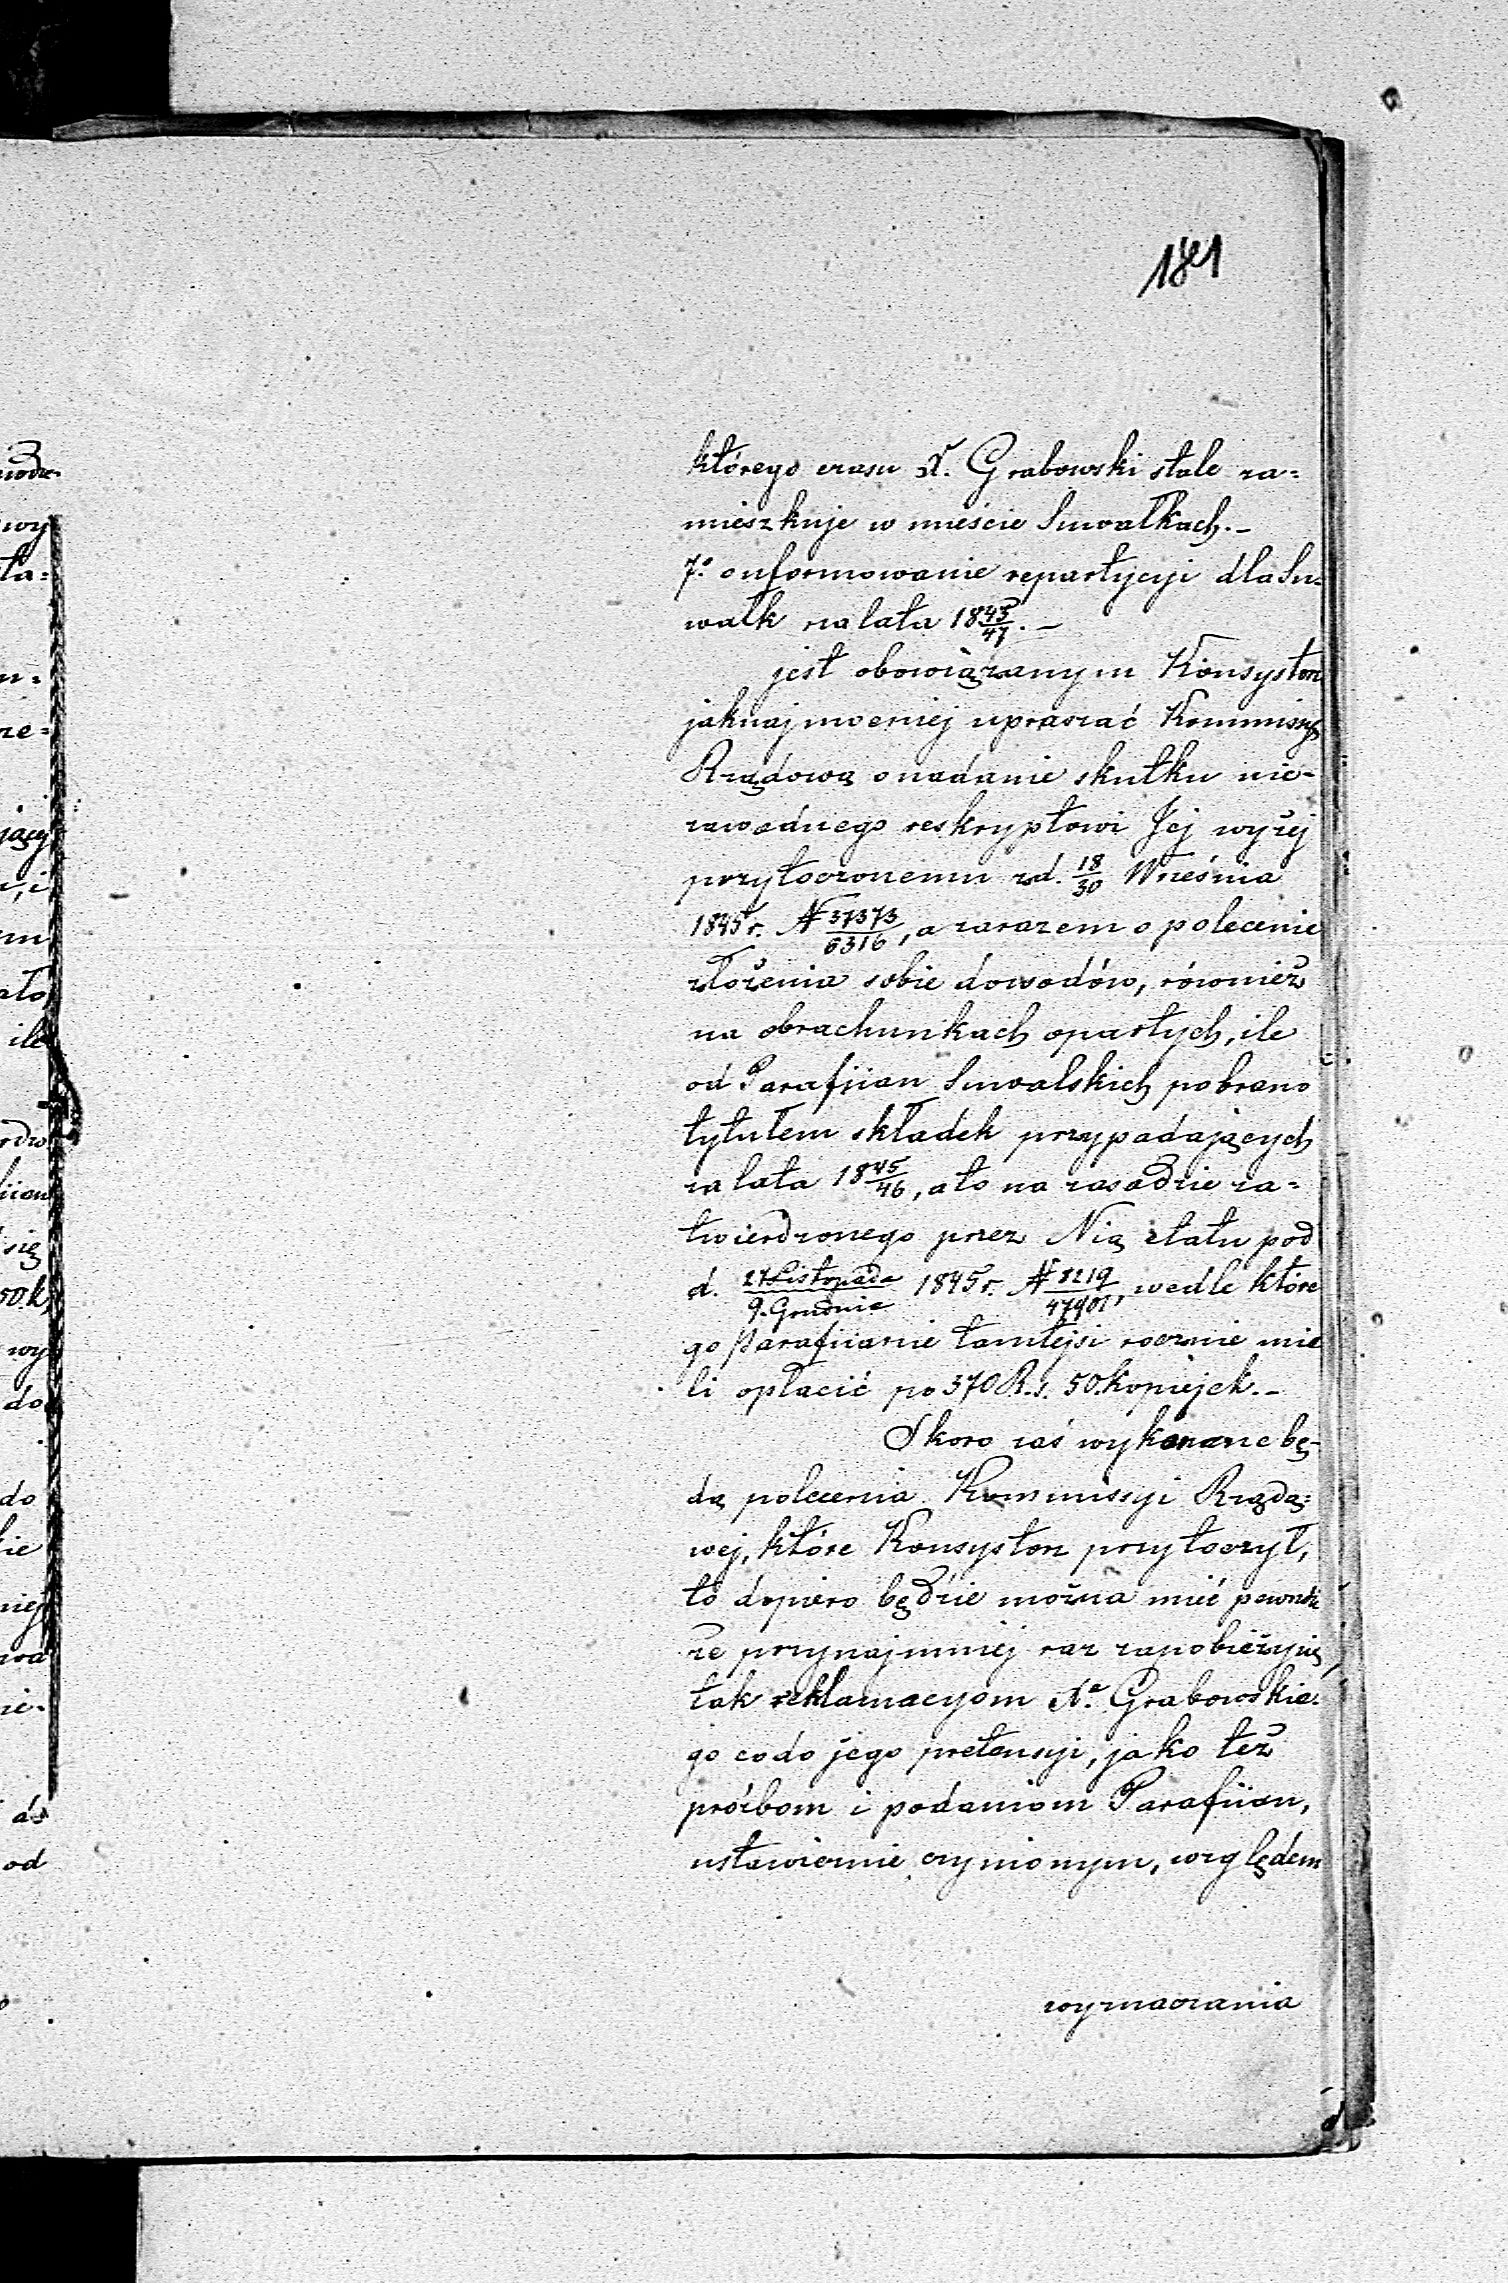 181
którego czasu X. Grabowski stale za=
mieszkuje w mieście Suwałkach.-
7.° o uformowanie repartycyi dla Su-
wałk na lata 18 43/47.-
jest obowiązanym Konsystorz
jaknajmocniej upraszać Kommissyę
Rządową o nadanie skutku nie-
zawodnego reskryptowi Jej wyżej
przytoczonemu z d. 18/30 Września
1845 r. N 37373/6316, a zarazem o polecenie
złożenia sobie dowodów, również
na obrachunkach opartych, ile
od Parafiian Suwalskich pobrano
tytułem składek przypadających
za lata 18 45/46, a to na zasadzie za=
twierdzonego przez Nią etatu pod
d. 27 Listopada/9. Grudnia 1845 r. N 8219/47901, wedle które
go Parafiianie tamtejsi rocznie mie
li opłacić po 370 R.s. 50. kopiejek.-
Skoro zaś wykonane bę-
dą polecenia Kommissyi Rządo=
wej, które Konsystorz przytoczył,
to dopiero będzie można mieć pewność
że przynajmniej raz zapobieży się
tak reklamacyom Xa. Grabowskie=
go co do jego pretensyi, jako też
prośbom i podaniom Parafiian,
ustawicznie czynionym, względem
wyznaczania
wy
ła=
ne=
jący
ile
się
50 k
wy
do
do
od